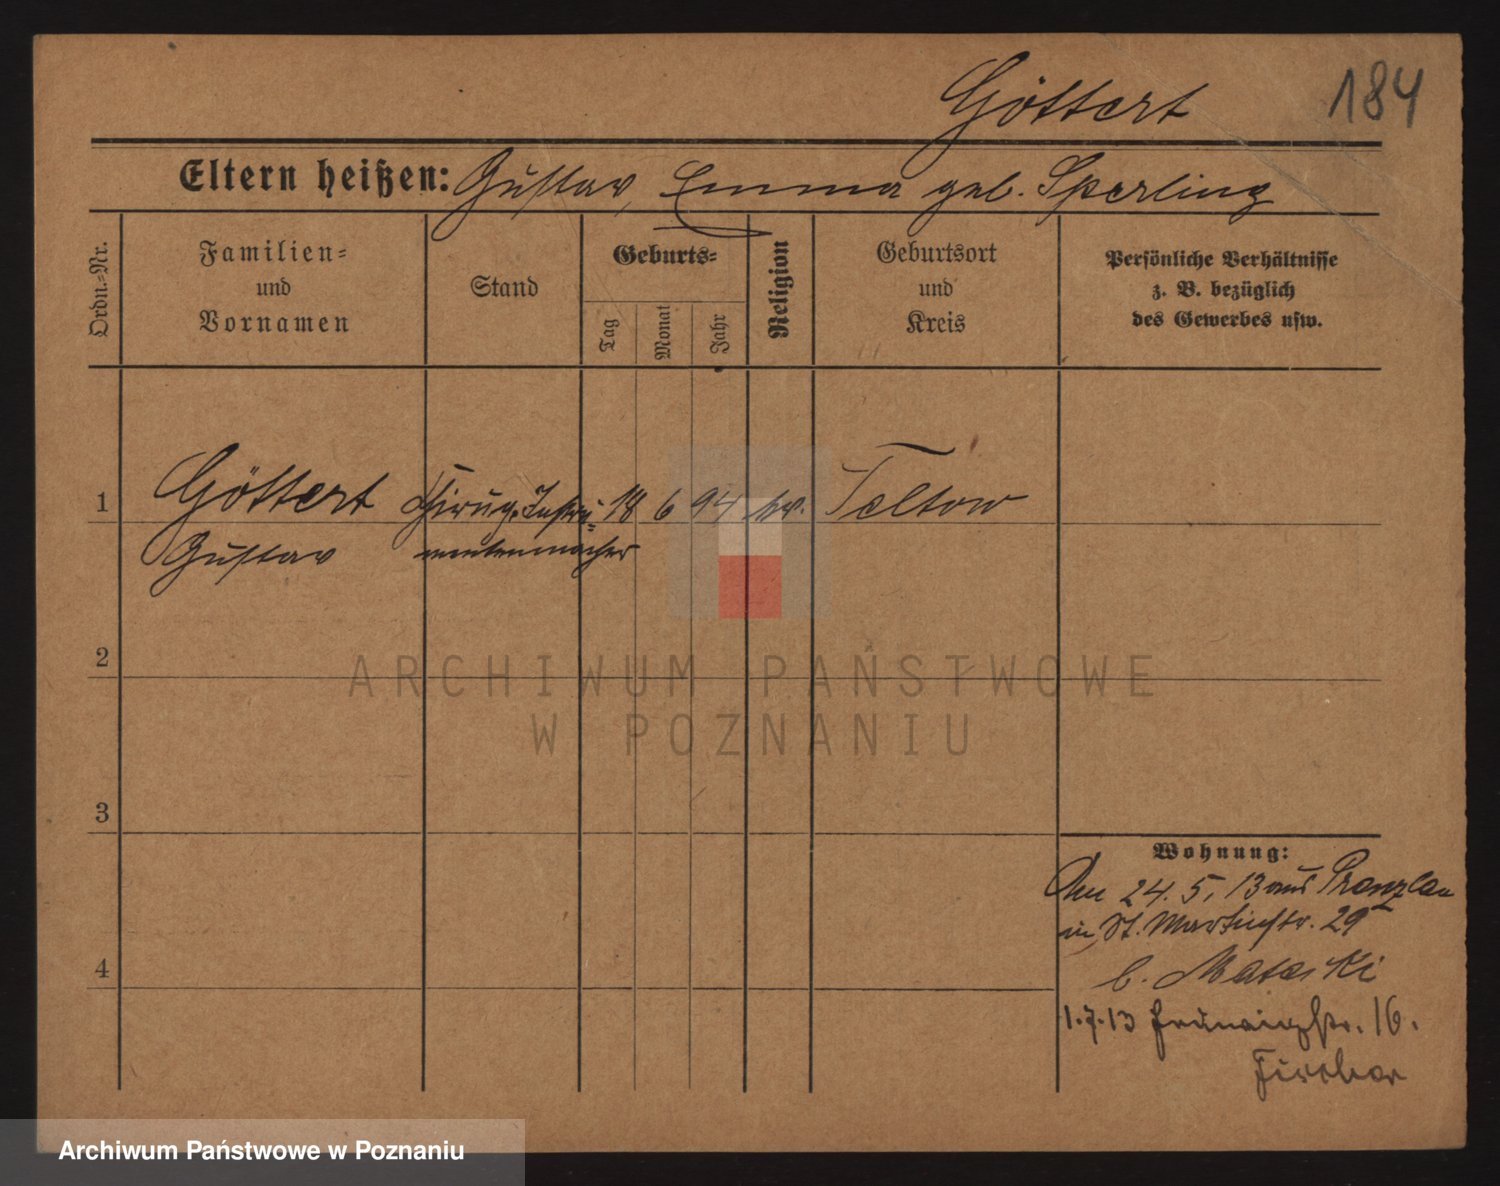 Göttert
184
Eltern heißen: Gustav, Emma geb. Sperling
Ordn.-Nr.
Familien-
und
Vornamen
Stand
Geburts-
Tag
Monat
Jahr
Religion
Geburtsort
und
Kreis
Persönliche Verhältnisse
z. B. bezüglich
des Gewerbes usw.
1
Göttert
Gustav
Chirug. Instru-
mentenmacher
18 6 94 ev. Teltow
2
3
4
Wohnung:
24. 5. 13 aus Prenzlau
in St. Martinstr. 29
b.
1.7.13 16.
Fischer
ARCHIWUM PAŃSTWOWE
W POZNANIU
Archiwum Państwowe w Poznaniu